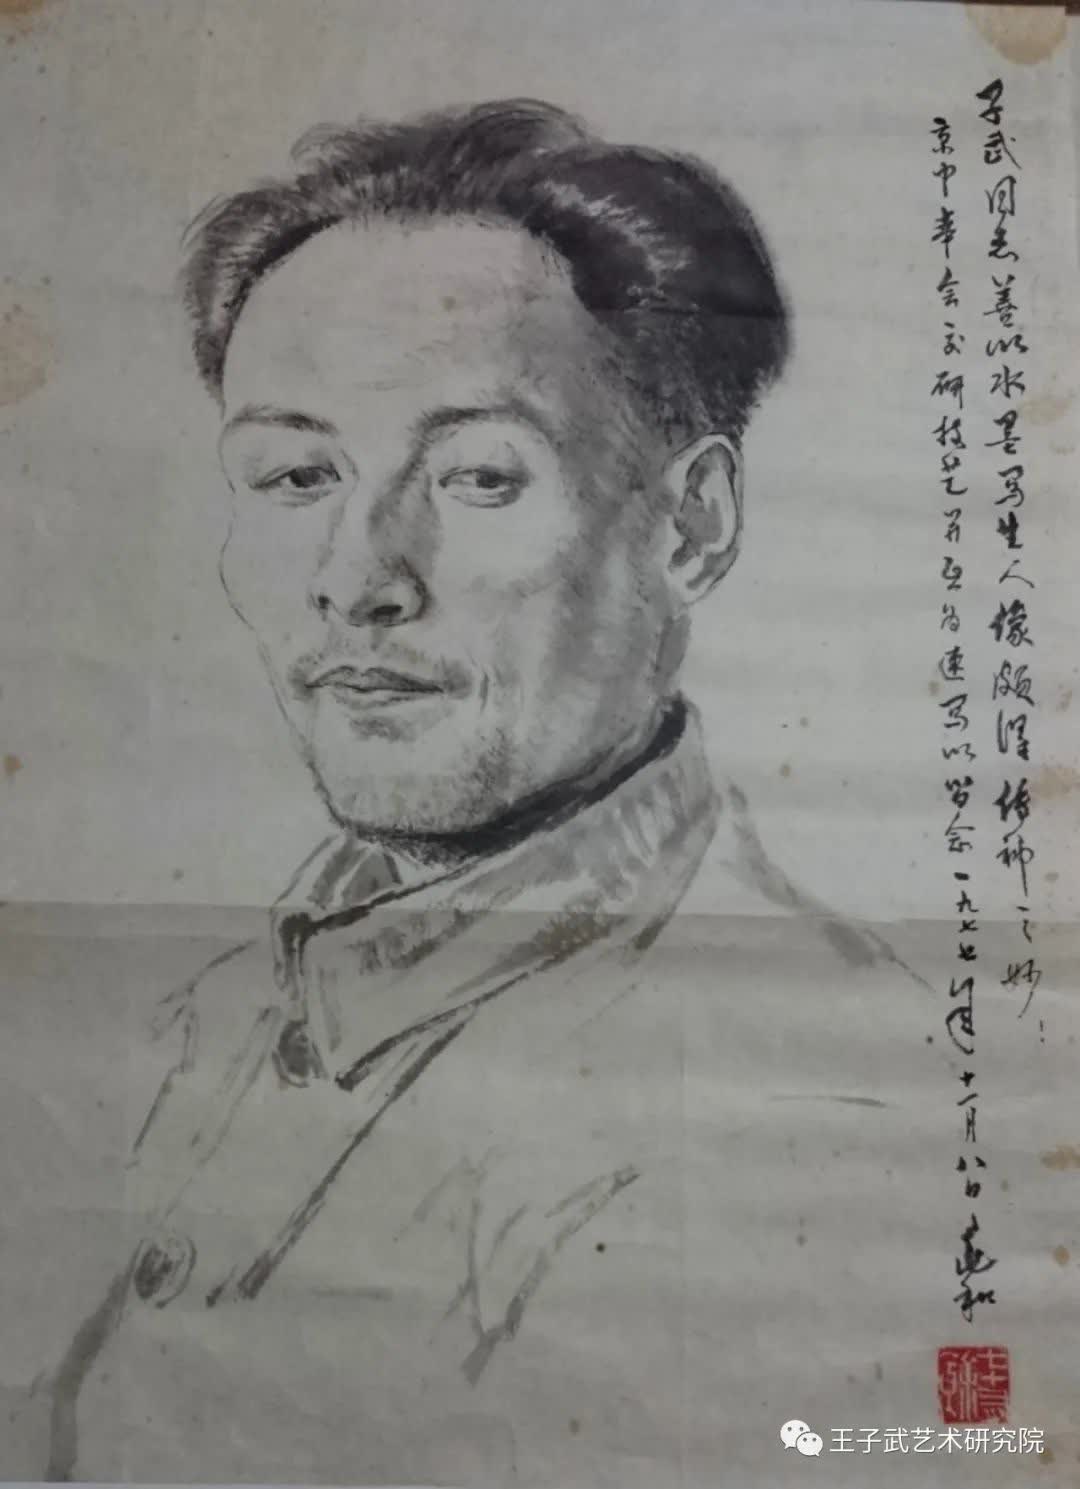 子武同志善以水墨写生人像颇得传神之妙！
京中幸会交研技艺并互为速写以留念一九七七年十一月八日
王子武艺术研究院